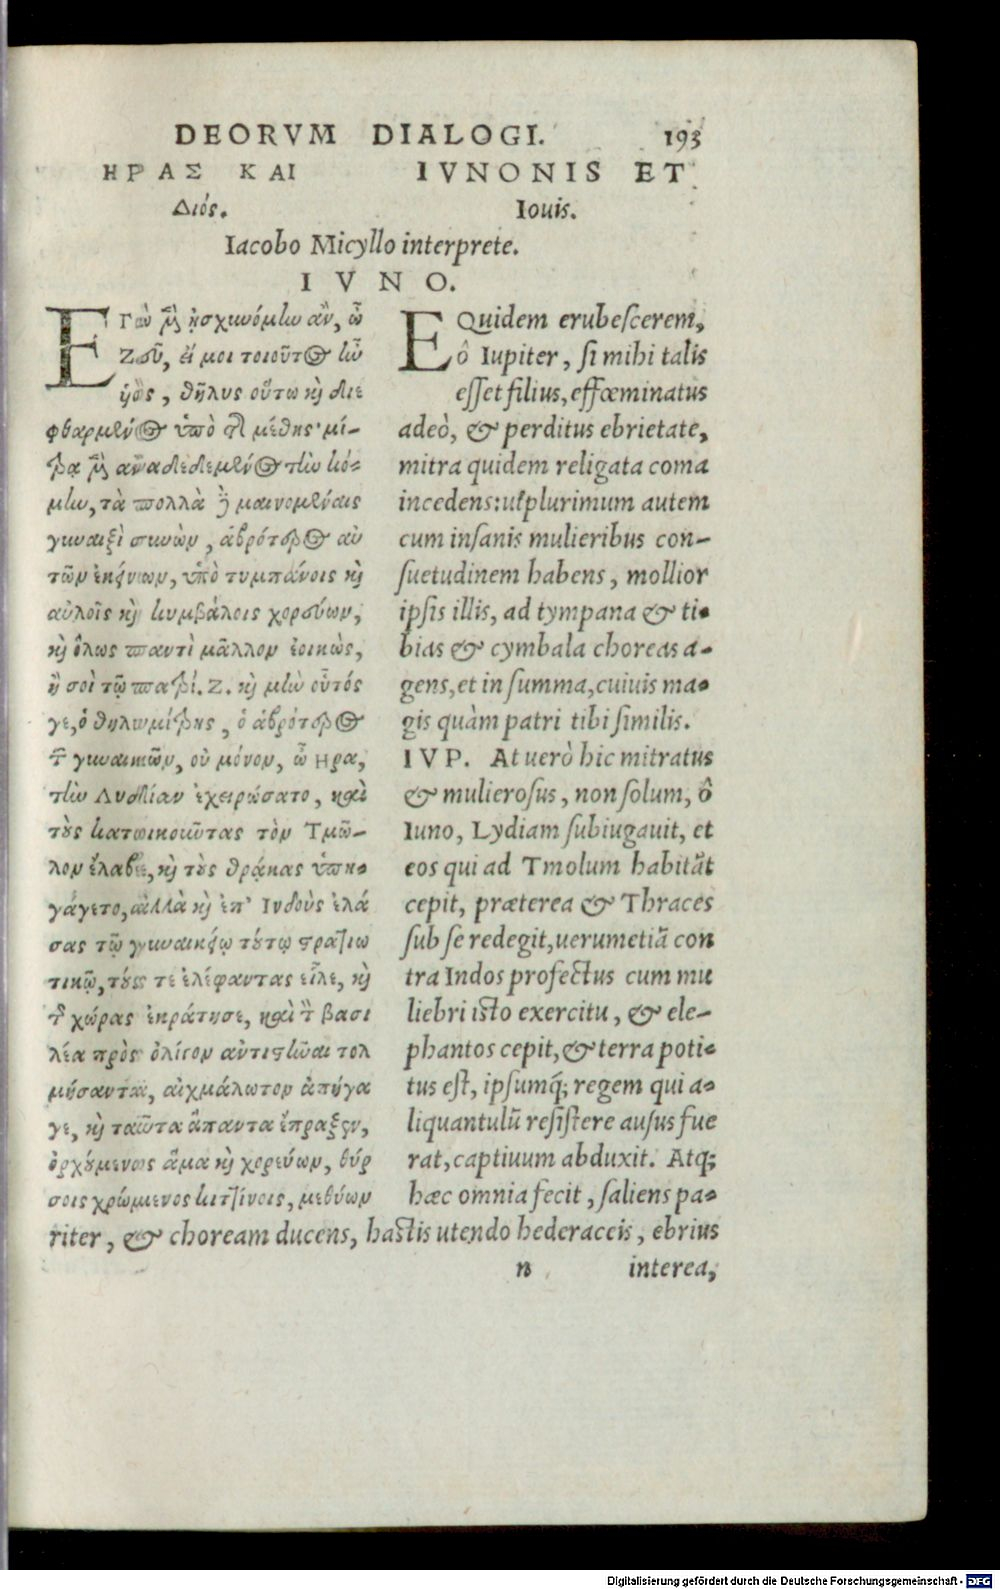 DEORVM DIALOGI. 193
ΗΡΑΣ ΚΑΙ
Διός.
IVNONIS ET
Iouis.
Iacobo Micyllo interprete.
IVNO.
ΕΓὼ μὲν ᾐσχυνόμην ἂν, ὦ
Ζεῦ, εἴ μοι τοιοῦτος ἦν
ὑὸς, θῆλυς οὕτω καὶ διε
φθαρμένος ὑπὸ τῆς μέθης· μί-
τρᾳ μὲν ἀναδεδεμένος τὴν κό-
μην, τὰ πολλὰ δὲ μαινομέναις
γυναιξὶ συνὼν, ἁβρότερος αὐ
τῶν ἐκείνων, ὑπὸ τυμπάνοις καὶ
αὐλοῖς καὶ κυμβάλοις χορεύων,
καὶ ὅλως παντὶ μᾶλλον ἐοικὼς,
ἢ σοὶ τῷ πατρί. Ζ. καὶ μὴν οὗτός
γε, ὁ θηλυμίτρης, ὁ ἁβρότερος
τῶν γυναικῶν, οὐ μόνον, ὦ Ηρα,
τὴν Λυδίαν ἐχειρώσατο, καὶ
τοὺς κατοικοῦντας τὸν Τμῶ-
λον ἔλαβε, καὶ τοὺς θρᾷκας ὑπη-
γάγετο, ἀλλὰ καὶ ἐπ' Ινδοὺς ἐλά
σας τῷ γυναικείῳ τούτῳ στρατιω
τικῷ, τούς τε ἐλέφαντας εἷλε, καὶ
τῆς χώρας ἐκράτησε, καὶ τὸν βασι
λέα πρὸς ὀλίγον ἀντιστῆναι τολ
μήσαντα, αἰχμάλωτον ἀπήγα
γε, καὶ ταῦτα ἅπαντα ἔπραξεν,
ὀρχούμενος ἅμα καὶ χορεύων, θύρ
σοις χρώμενος κιττίνοις, μεθύων
EQuidem erubeſcerem,
ô Iupiter, ſi mihi talis
eſſet filius, effœminatus
adeò, & perditus ebrietate,
mitra quidem religata coma
incedens: ut plurimum autem
cum inſanis mulieribus con-
ſuetudinem habens, mollior
ipſis illis, ad tympana & ti-
bias & cymbala choreas a-
gens, et in ſumma, cuiuis ma-
gis quàm patri tibi ſimilis.
IVP. At uerò hic mitratus
& mulieroſus, non ſolum, ô
Iuno, Lydiam ſubiugauit, et
eos qui ad Tmolum habitãt
cepit, præterea & Thraces
ſub ſe redegit, uerumetiã con
tra Indos profectus cum mu
liebri iſto exercitu, & ele-
phantos cepit, & terra poti-
tus eſt, ipſumq; regem qui a-
liquantulũ reſiſtere auſus fue
rat, captiuum abduxit. Atq;
hæc omnia fecit, ſaliens pa-
riter, & choream ducens, haſtis utendo hederaceis, ebrius
n interea,
Digitalisierung gefördert durch die Deutsche Forschungsgemeinschaft - DFG